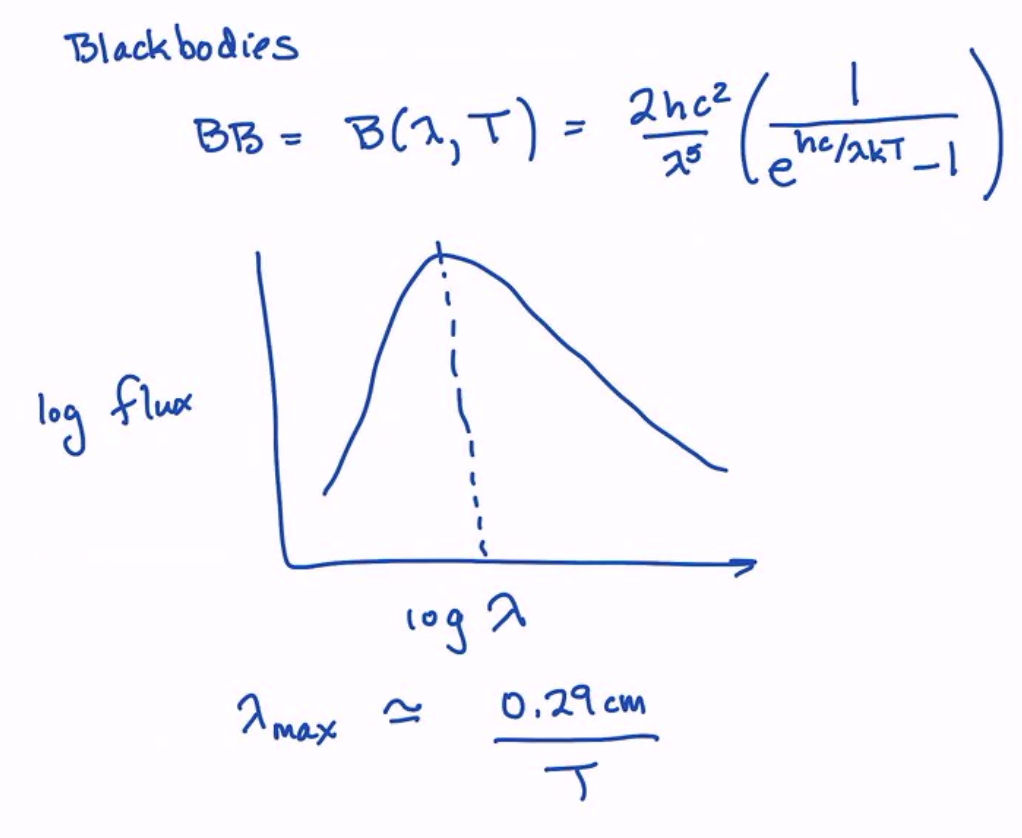 Blackbodies
BB = B(λ, T) = 2hc²/λ⁵ (1/(e^(hc/λkT) − 1))
log flux
log λ
λmax ≃ 0.29 cm/T